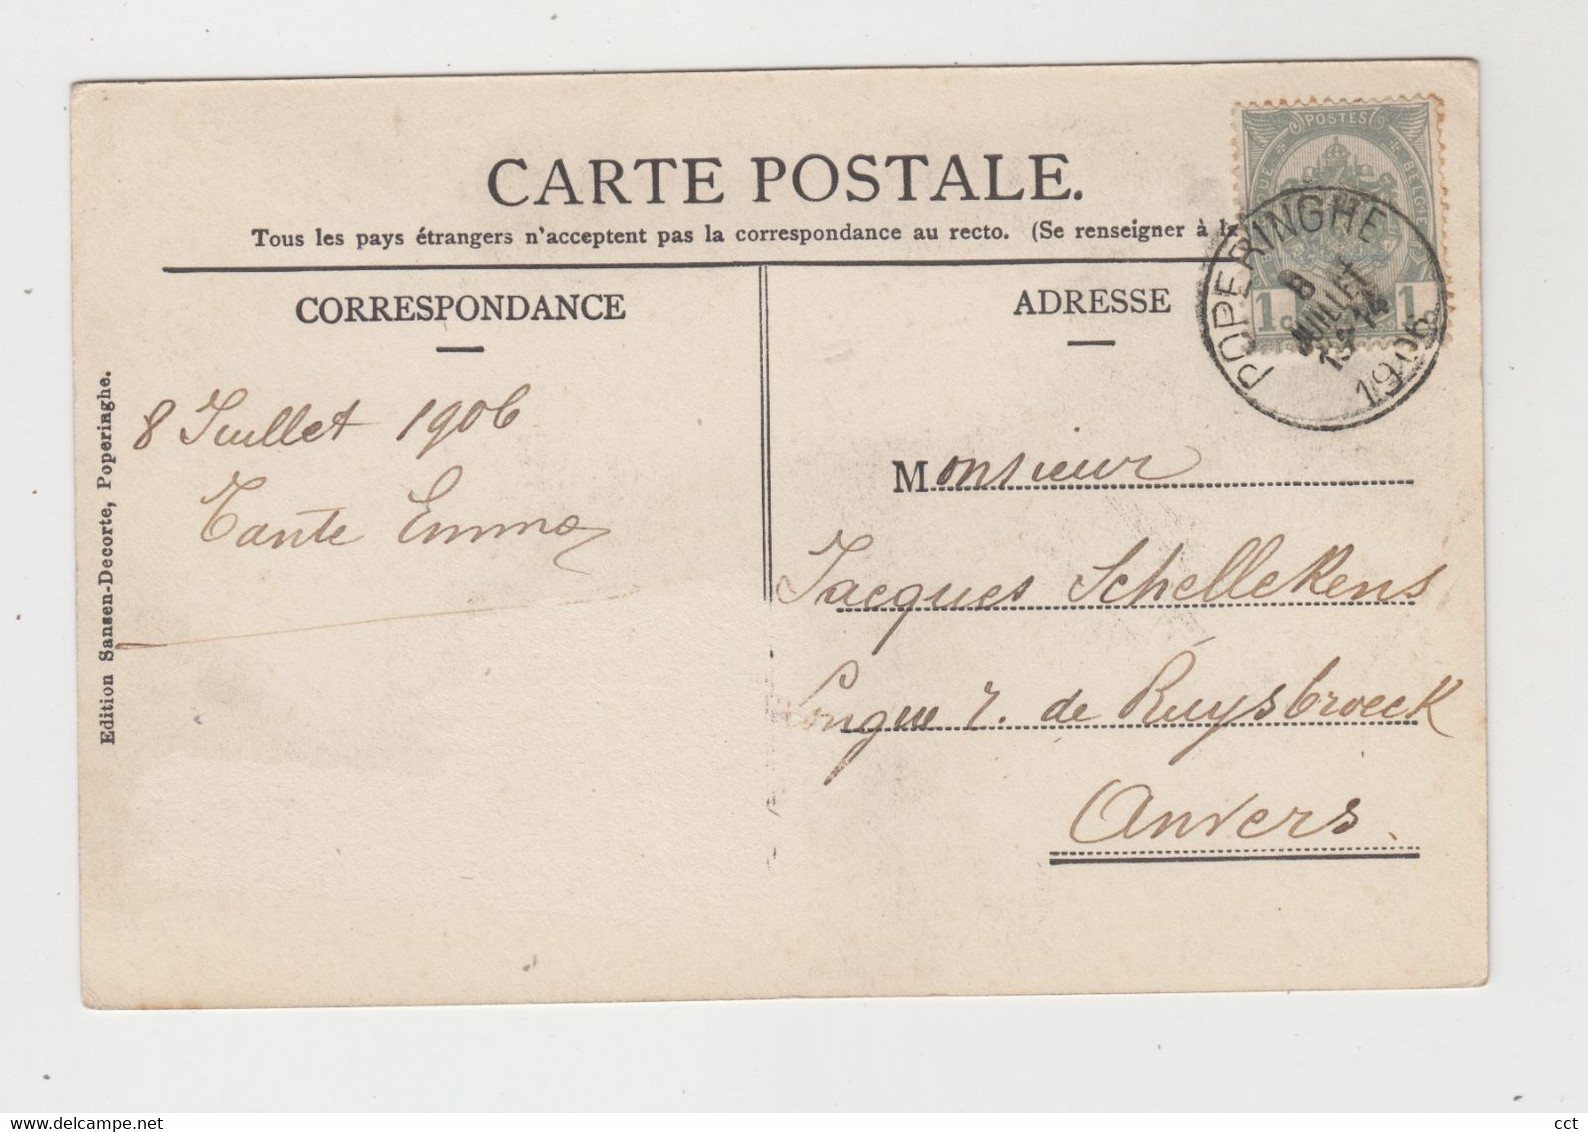 CARTE POSTALE.
Tous les pays étrangers n'acceptent pas la correspondance au recto. (Se renseigner à la
CORRESPONDANCE
ADRESSE
POSTES
BELGIQUE
BELGIE
1c
1c
POPERINGHE
8
JUILLET
13-14
1906
8 Juillet 1906
Tante Emma
Monsieur
Jacques Schellekens
Longue r. de Ruysbroeck
Anvers.
Edition Sansen-Decorte, Poperinghe.
cct